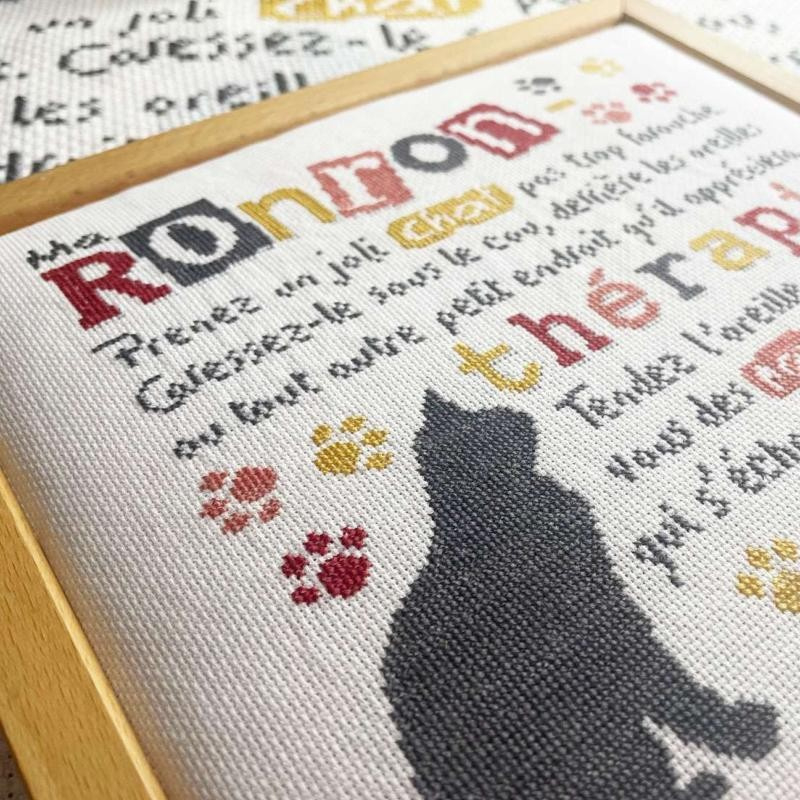 un joli chat
Caressez-le
les oreill
Ma
Ronron-
Prenez un joli chat pas trop farouche
Caressez-le sous le cou, derrière les oreilles
ou tout autre petit endroit qu'il appréciera
thérap
Tendez l'oreille
vous des
qui s'écha